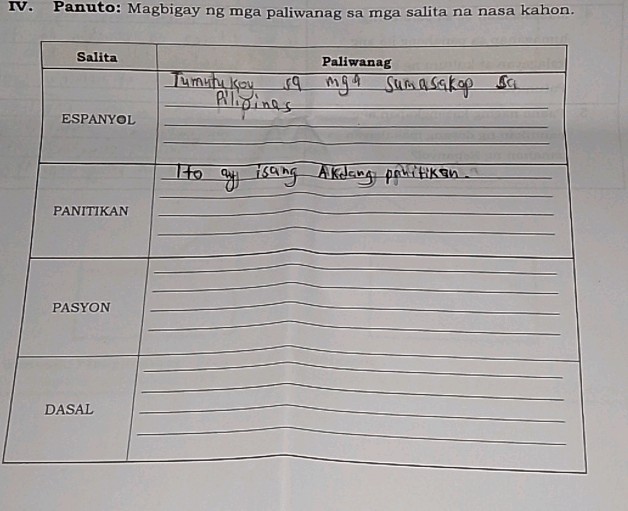 IV. Panuto: Magbigay ng mga paliwanag sa mga salita na nasa kahon.
Salita Paliwanag
ESPANYOL
Tumutukoy sa mga sumasakop sa
Pilipinas
PANITIKAN
Ito ay isang Akdang panitikan.
PASYON
DASAL